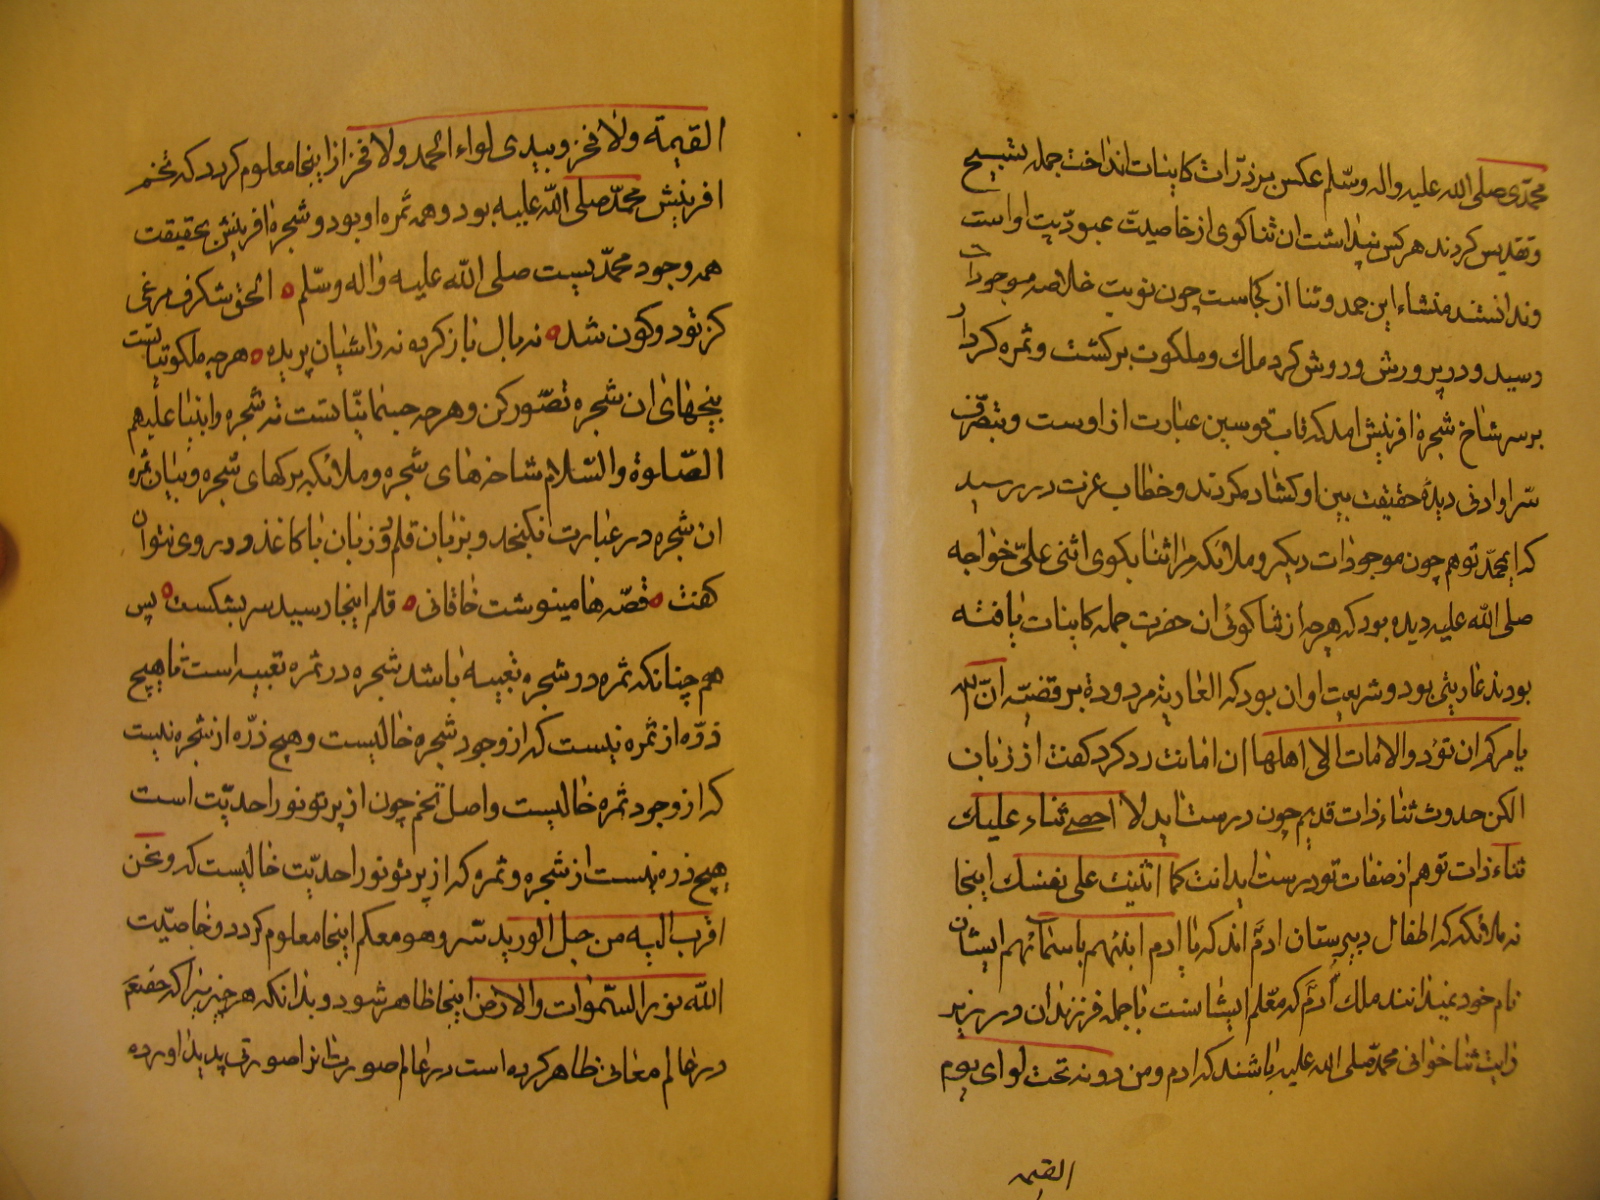 محمّدی صلی الله علیه واله وسّلم عکس بر ذرّات کاینات انداخت جمله تسبیح
وتقدیس کردند هرکس پنداشت ان ثناکوی از خاصیت عبودیت اواست
وندانستند منشاء این حمد وثنا از کجاست چون نوبت خلاصه موجودات
رسید ودر پرورش وروش کرد ملك وملکوت برکشت وثمره کردار
بر سر شاخ شجرۀ افرینش امد که قاب قوسین عبارت از اوست وبتصرّف
سّر اوادنی دیدۀ حقیقت بین او کشاده کردند وخطاب عزت در رسید
که ای محمّد توهم چون موجودات دیکر وملائکه مرا ثنا بکوی اثنی علیّ خواجه
صلی الله علیه دیده بود که هرچه از ثناکوئی ان حضرت جمله کاینات یافته
بودند عاریتی بود وشریعت او ان بود که العاریة مردودة بر قضیّه انّ الله
یامرکم ان تؤدوالامانات الی اهلها ان امانت رد کرد کفت از زبان
الکن حدوث ثناء ذات قدیم چون درست اید لا احصی ثناء علیك
ثناء ذات توهم از صفات تو درست اید انت کما اثنیت علی نفسك اینجا
نه ملائکه که اطفال دبیرستان ادمّ اند که یا ادم انبئهم باسمائهم ایشان
نام خود نمیدانند ملك ادمّ که معّلم ایشانست با جمله فرزندان در زیر
رایت ثناخوانی محمّد صلی الله علیه باشند که ادم ومن دونه تحت لوای یوم
القیمه
القیمة ولا فخر وبیدی لواء الحمد ولا فخر از اینجا معلوم کردد که تخم
افرینش محمّد صلی الله علیه بود وهمه ثمره او بود وشجرۀ افرینش بحقیقت
همه وجود محمّدیست صلی الله علیه واله وسّلم الحق شکرف مرغی
کز تو دو کون شد نه بال باز کرده نه ز اشیان پریده هرچه ملکوتیاتست
بیخهای ان شجره تصّور کن وهرچه جسمانیّاتست تنه شجره وانبیا علیهم
الصّلوة والسّلام شاخهای شجره وملائکه برکهای شجره وبیان ثمرۀ
ان شجره در عبارت نکنجد وبزبان قلم دو زبان با کاغذ دو روی نتوان
کفت قصّه ها مینوشت خاقانی قلم اینجا رسید سر بشکست پس
هم چنانکه ثمره در شجره تعبیه باشد شجره در ثمره تعبیه است تا هیچ
ذرّه از ثمره نیست که از وجود شجره خالیست وهیچ ذرّه از شجره نیست
که از وجود ثمره خالیست واصل تخم چون از پرتو نور احدیّت است
هیچ ذره نیست از شجره وثمره که از پرتو نور احدیّت خالیست که ونحن
اقرب الیه من حبل الورید سّر وهو معکم اینجا معلوم کردد وخاصیّت
الله نور السّموات والارض اینجا ظاهر شود وبدانکه هرچیزیرا که حقتعم
در عالم معانی ظاهر کرده است در عالم صورت انرا صورتی پدید اورده